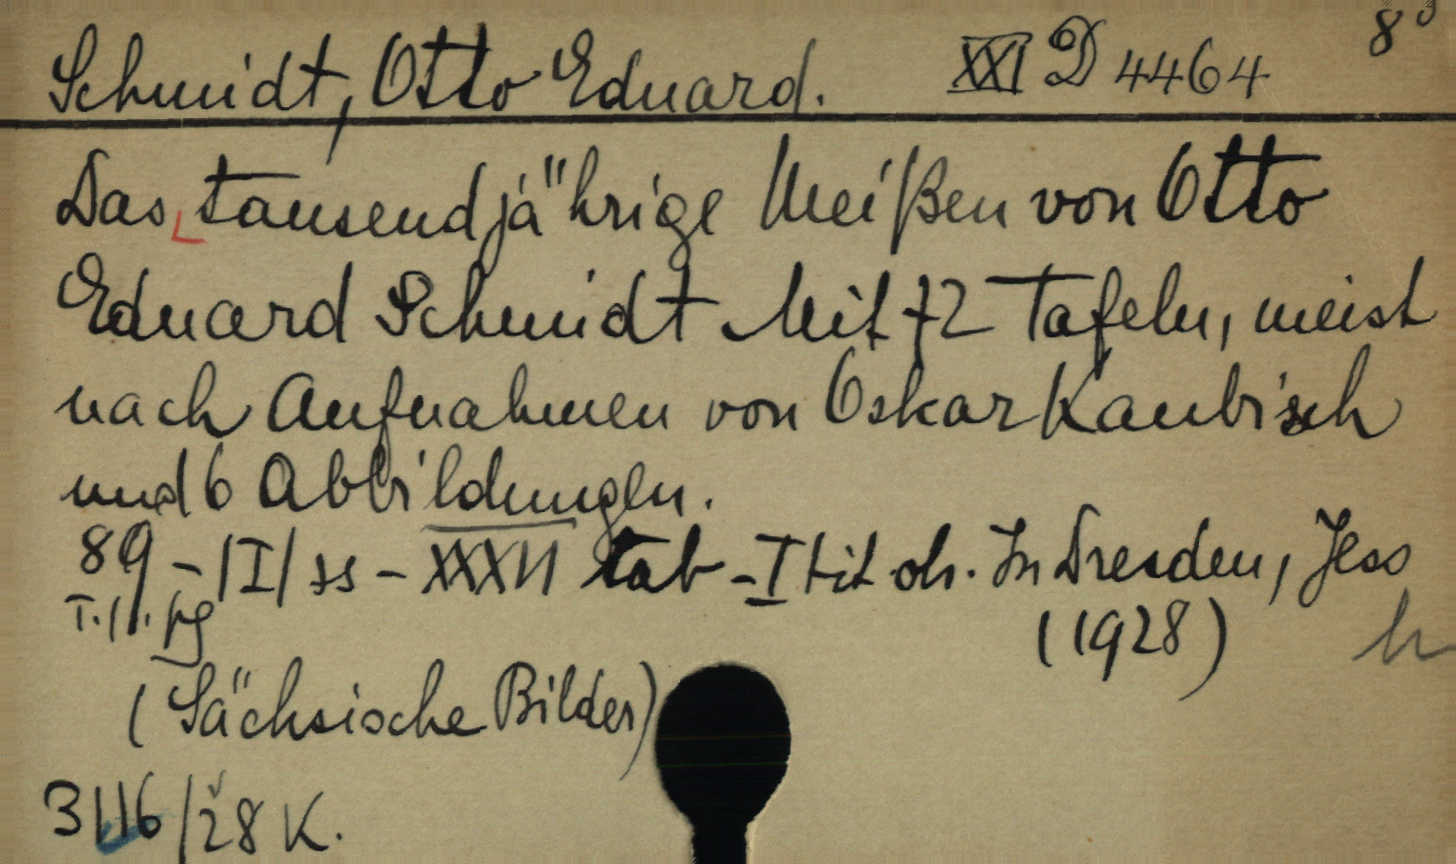 Schmidt, Otto Eduard. XXI D 4464 8°
Das tausendjährige Meißen von Otto
Eduard Schmidt Mit 72 Tafeln, meist
nach Aufnahmen von Oskar Kaubisch
und 6 Abbildungen.
89 - |I| ss - XXXVI tab - I tit oh. In Dresden, Jess
(1928)
(Sächsische Bilder)
3116/28 K.